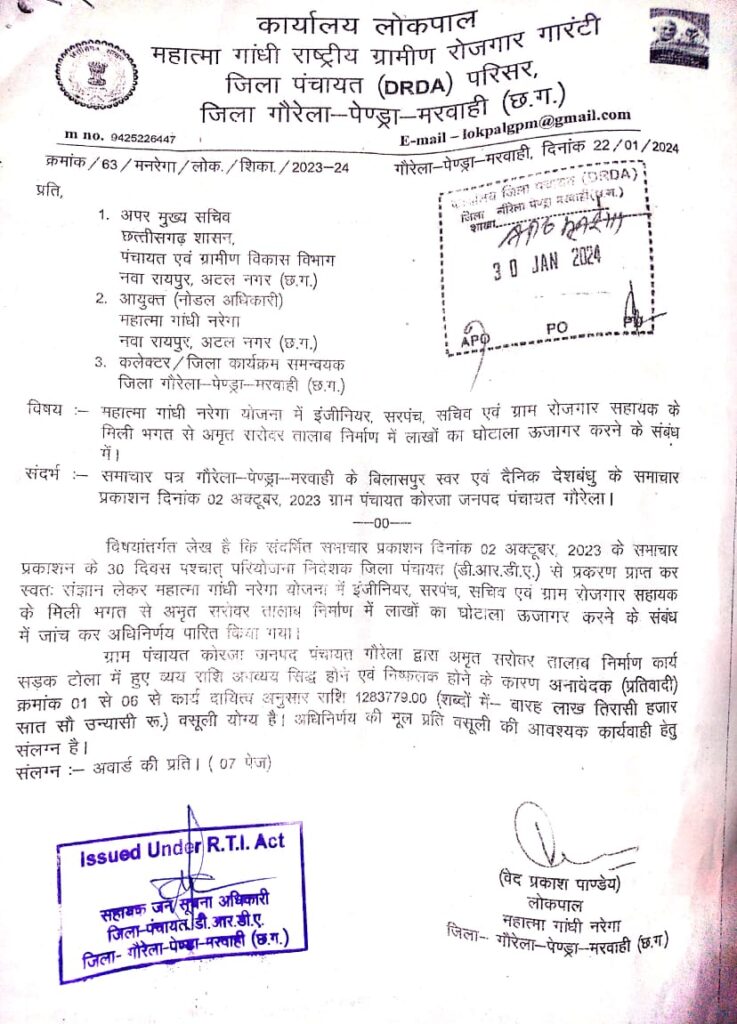 कार्यालय लोकपाल
महात्मा गांधी राष्ट्रीय ग्रामीण रोजगार गारंटी
जिला पंचायत (DRDA) परिसर,
जिला गौरेला–पेण्ड्रा–मरवाही (छ.ग.)
m no. 9425226447
E-mail – lokpalgpm@gmail.com
क्रमांक/63/मनरेगा/लोक./शिका./2023-24
गौरेला–पेण्ड्रा–मरवाही, दिनांक 22/01/2024
प्रति,
1. अपर मुख्य सचिव
छत्तीसगढ़ शासन,
पंचायत एवं ग्रामीण विकास विभाग
नवा रायपुर, अटल नगर (छ.ग.)
2. आयुक्त (नोडल अधिकारी)
महात्मा गांधी नरेगा
नवा रायपुर, अटल नगर (छ.ग.)
3. कलेक्टर/जिला कार्यक्रम समन्वयक
जिला गौरेला–पेण्ड्रा–मरवाही (छ.ग.)
कार्यालय जिला पंचायत (DRDA)
जिला गौरेला पेण्ड्रा मरवाही(छ.ग.)
शाखा
30 JAN 2024
APO PO
विषय :– महात्मा गांधी नरेगा योजना में इंजीनियर, सरपंच, सचिव एवं ग्राम रोजगार सहायक के
मिली भगत से अमृत सारोदर तालाब निर्माण में लाखों का घोटाला ऊजागर करने के संबंध
में।
संदर्भ :– समाचार पत्र गौरेला–पेण्ड्रा–मरवाही के बिलासपुर स्वर एवं दैनिक देशबंधु के समाचार
प्रकाशन दिनांक 02 अक्टूबर, 2023 ग्राम पंचायत कोरजा जनपद पंचायत गौरेला।
—00—
विषयांतर्गत लेख है कि संदर्भित समाचार प्रकाशन दिनांक 02 अक्टूबर, 2023 के समाचार
प्रकाशन के 30 दिवस पश्चात् परियोजना निदेशक जिला पंचायत (डी.आर.डी.ए.) से प्रकरण प्राप्त कर
स्वतः संज्ञान लेकर महात्मा गांधी नरेगा योजना में इंजीनियर, सरपंच, सचिव एवं ग्राम रोजगार सहायक
के मिली भगत से अमृत सरोवर तालाब निर्माण में लाखों का घोटाला ऊजागर करने के संबंध
में जांच कर अधिनिर्णय पारित किया गया।
ग्राम पंचायत कोरजा जनपद पंचायत गौरेला द्वारा अमृत सरोवर तालाब निर्माण कार्य
सड़क टोला में हुए व्यय राशि अनव्यय सिद्ध होने एवं निष्फल होने के कारण अनावेदक (प्रतिवादी)
क्रमांक 01 से 06 से कार्य दायित्व अनुसार राशि 1283779.00 (शब्दों में– वारह लाख तिरासी हजार
सात सौ उन्यासी रू.) वसूली योग्य है। अधिनिर्णय की मूल प्रति वसूली की आवश्यक कार्यवाही हेतु
संलग्न है।
संलग्न :– अवार्ड की प्रति। ( 07 पेज)
Issued Under R.T.I. Act
सहायक जन सूचना अधिकारी
जिला-पंचायत, डी.आर.डी.ए.
जिला- गौरेला-पेण्ड्रा-मरवाही (छ.ग.)
(वेद प्रकाश पाण्डेय)
लोकपाल
महात्मा गांधी नरेगा
जिला– गौरेला–पेण्ड्रा–मरवाही (छ.ग)